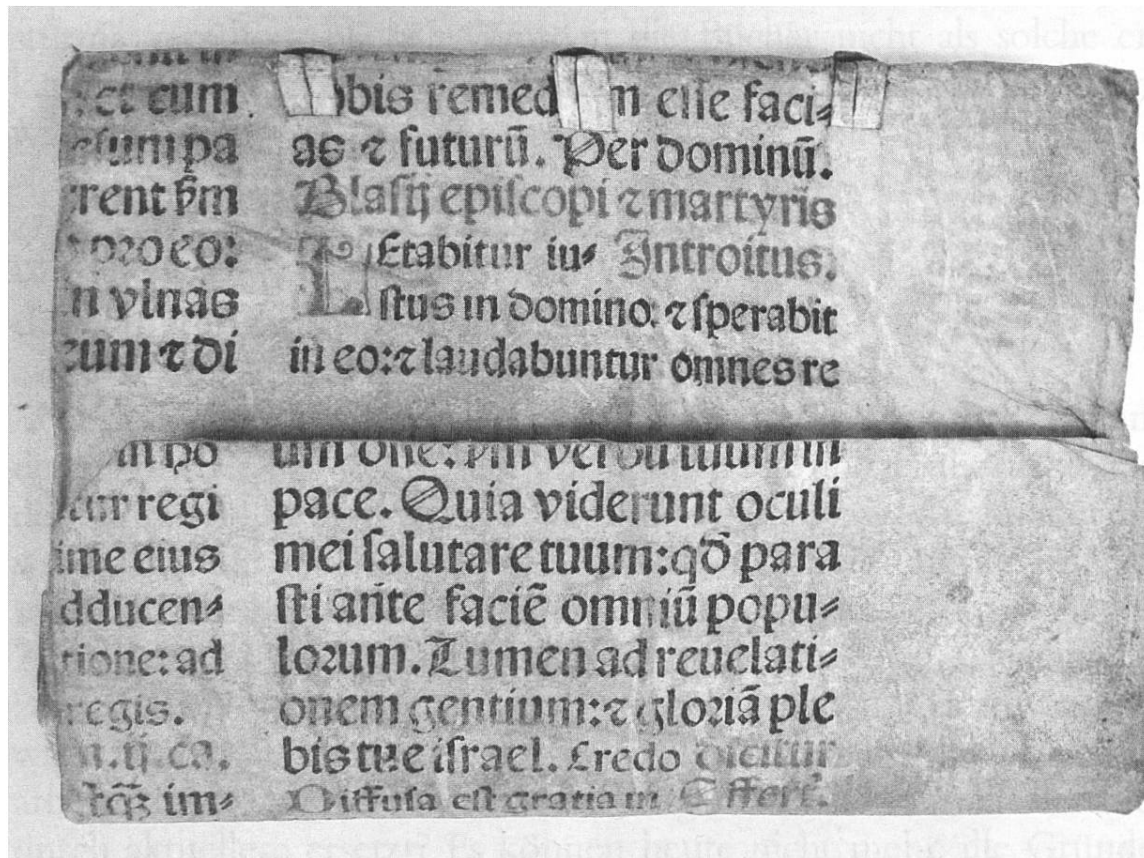 et cum
pa
rent
pro eo:
n vlnas
cum ⁊ di
bis remed m eſſe faci⸗
as ⁊ futurū. Per dominū.
Blaſij epiſcopi ⁊ martyris
LEtabitur iu⸗ Introitus.
ſtus in domino: ⁊ ſperabit
in eo: ⁊ laudabuntur omnes re
regi
ime eius
dducen⸗
tione: ad
regis.
.ij.ca.
im⸗
um dñe: ẜm verbū tuum in
pace. Quia viderunt oculi
mei ſalutare tuum: qď para
ſti ante faciē omniū popu⸗
lorum. Lumen ad reuelati⸗
onem gentium: ⁊ gloriā ple
bis tue iſrael. Credo dicitur
Diffuſa eſt gratia in Offert.